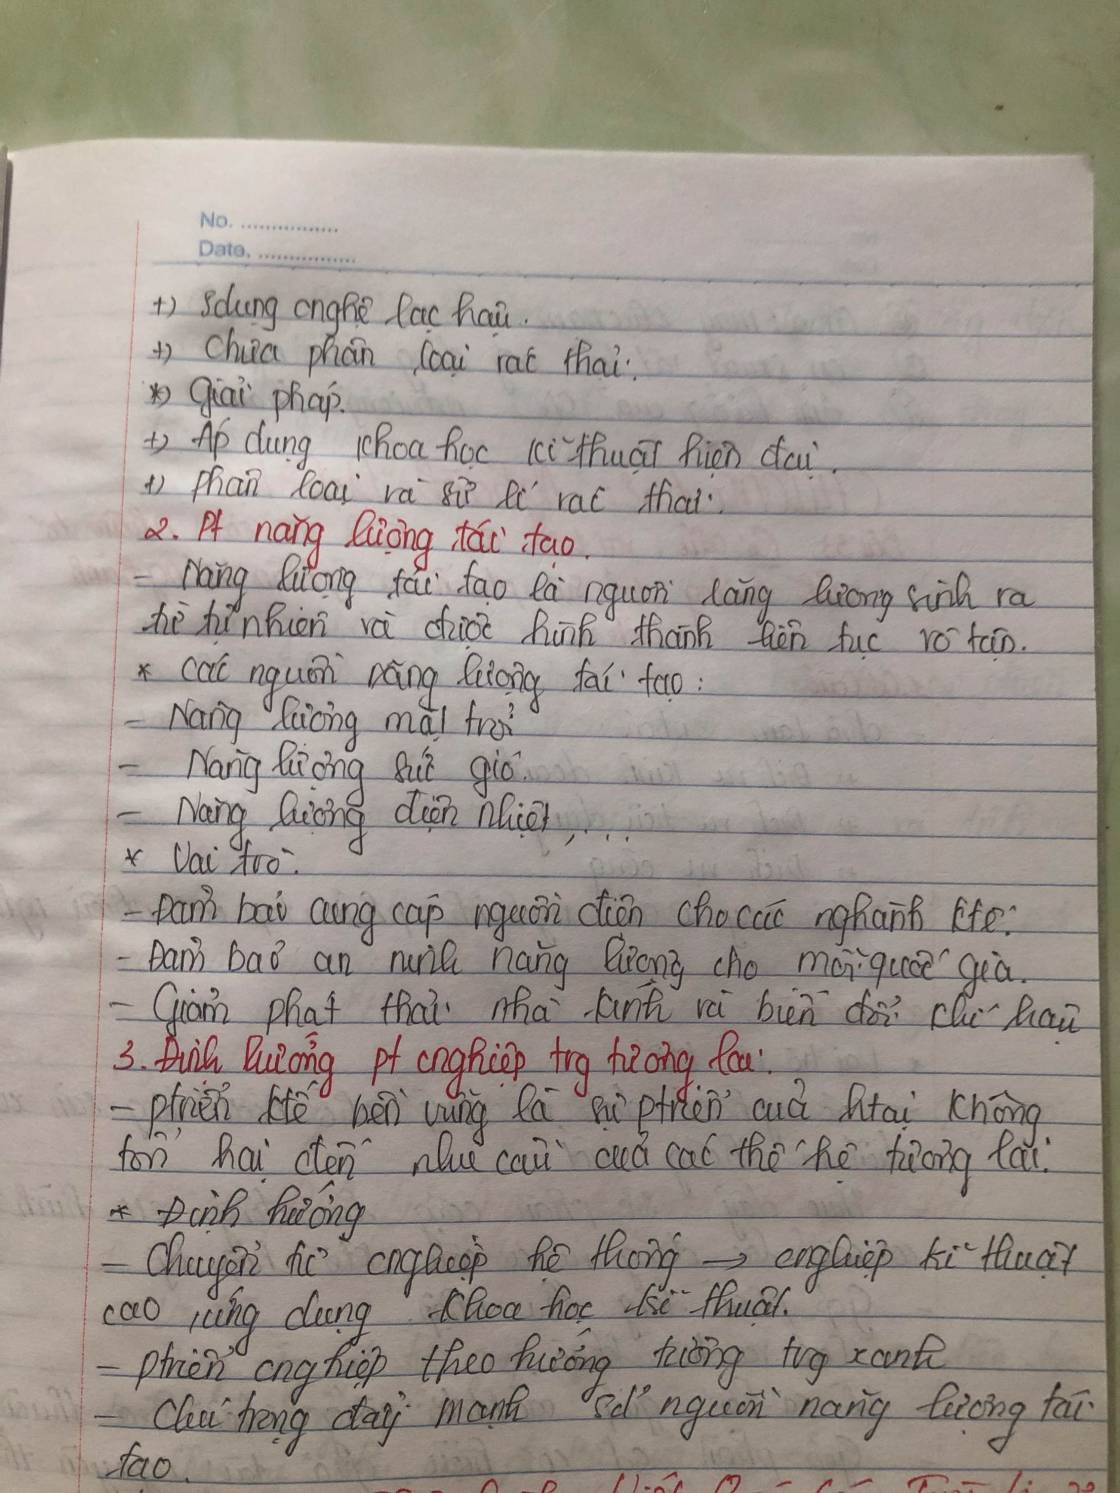 No. ................
Date. ................
+) Sdụng cnghệ lạc hậu.
+) Chưa phân loại rác thải.
*) Giải pháp.
+) Áp dụng khoa học kĩ thuật hiện đại.
+) phân loại và sử lí rác thải.
2. Pt năng lượng tái tạo.
- Năng lượng tái tạo là nguồn năng lượng sinh ra
từ tự nhiên và được hình thành liên tục vô tận.
* Các nguồn năng lượng tái tạo:
- Năng lượng mặt trời
- Năng lượng sức gió.
- Năng lượng điện nhiệt, ...
* Vai trò.
- Đảm bảo cung cấp nguồn điện cho các nghành kte.
- Đảm bảo an ninh năng lượng cho mỗi quốc gia.
- Giảm phát thải nhà kính và biến đổi khí hậu
3. Định hướng pt cnghiệp trg tương lai.
- ptriển ktế bền vững là sự ptriển của htại không
tổn hại đến nhu cầu của các thế hệ tương lai.
* Định hướng
- Chuyển từ cnghiệp hệ thống → cnghiệp kĩ thuật
cao, ứng dụng khoa học kĩ thuật.
- ptriển cnghiệp theo hướng tường trg xanh
- Chú trọng đẩy mạnh sd nguồn năng lượng tái
tạo.